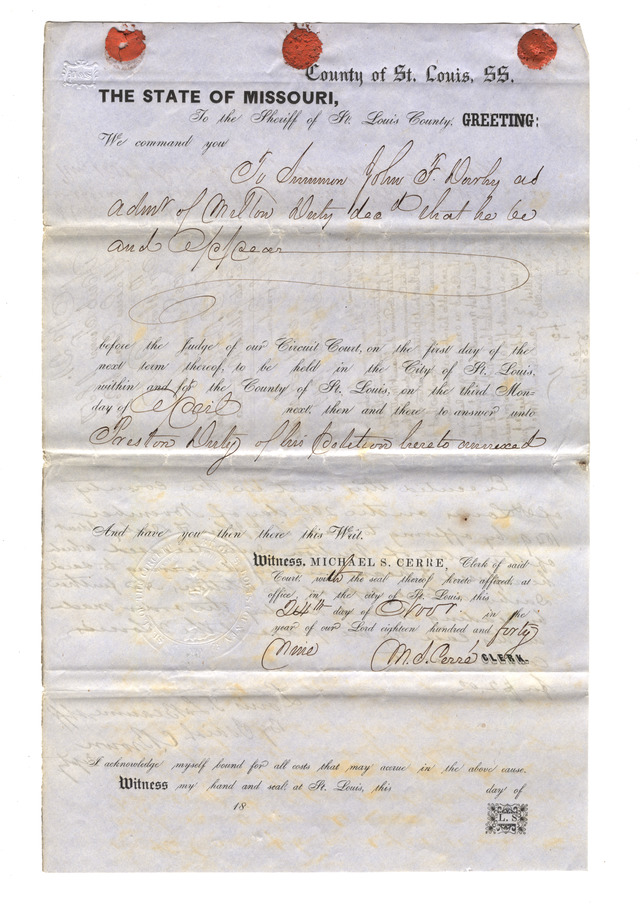 County of St. Louis, SS.
THE STATE OF MISSOURI,
To the Sheriff of St. Louis County, GREETING:
We command you
To Summon John F. Darby as
admr of Milton Duty decd that he be
and appear
before the Judge of our Circuit Court, on the first day of the
next term thereof, to be held in the City of St. Louis,
within and for the County of St. Louis, on the third Mon-
day of April next, then and there to answer unto
Preston Duty of his petition hereto annexed
And have you then there this Writ.
Witness, MICHAEL S. CERRE, Clerk of said
Court, with the seal thereof hereto affixed, at
office, in the city of St. Louis, this
24th day of Novr in the
year of our Lord eighteen hundred and forty
Nine M. S. Cerré CLERK.
I acknowledge myself bound for all costs that may accrue in the above cause.
Witness my hand and seal, at St. Louis, this day of
18
L. S.